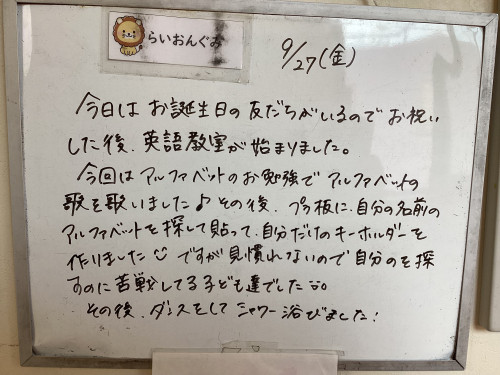 らいおんぐみ
9/27(金)
今日は お誕生日の 友だちがいるので お祝い
した後、英語教室が始まりました。
今回は アルファベットのお勉強で アルファベットの
歌を歌いました♪ その後、プラ板に、自分の名前の
アルファベットを探して貼って、自分だけのキーホルダーを
作りました☺ ですが見慣れないので 自分のを探
すのに苦戦してる子ども達でした☺。
その後、ダンスをして シャワー浴びました!